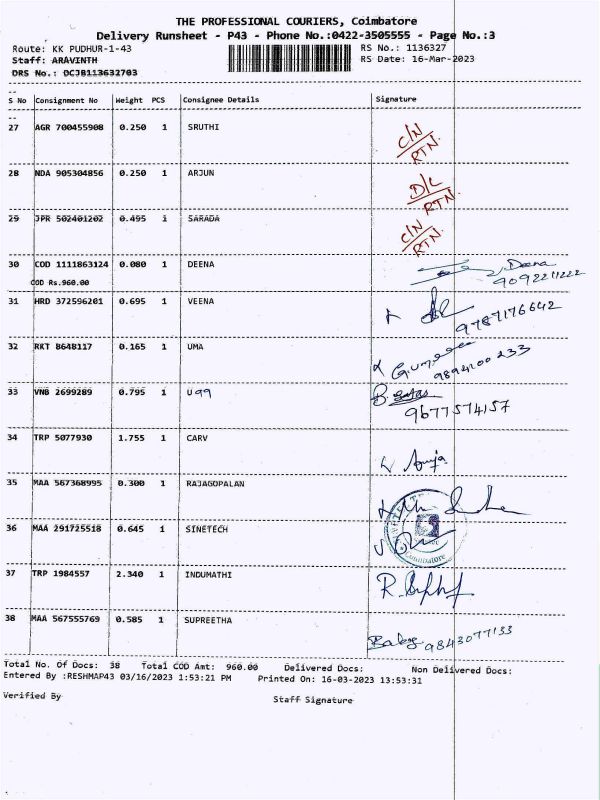 THE PROFESSIONAL COURIERS, Coimbatore
Delivery Runsheet - P43 - Phone No.:0422-3505555 - Page No.:3
Route: KK PUDHUR-1-43 RS No.: 1136327
Staff: ARAVINTH RS Date: 16-Mar-2023
DRS No.: DCJB113632703
S No Consignment No Weight PCS Consignee Details Signature
27 AGR 700455908 0.250 1 SRUTHI
C/N
RTN
28 NDA 905304856 0.250 1 ARJUN
D/L
RTN
29 JPR 502401202 0.495 1 SARADA
C/N
RTN.
30 COD 1111863124 0.080 1 DEENA Deena
COD Rs.960.00 9092211222
31 HRD 372596201 0.695 1 VEENA
9787176642
32 RKT 8648117 0.165 1 UMA
9894100233
33 VNB 2699289 0.795 1 U 99 B.
9677574157
34 TRP 5077930 1.755 1 CARV
Anuja
35 MAA 567368995 0.300 1 RAJAGOPALAN
36 MAA 291725518 0.645 1 SINETECH
Coimbatore
37 TRP 1984557 2.340 1 INDUMATHI
R.
38 MAA 567555769 0.585 1 SUPREETHA
9843077133
Total No. Of Docs: 38 Total COD Amt: 960.00 Delivered Docs: Non Delivered Docs:
Entered By :RESHMAP43 03/16/2023 1:53:21 PM Printed On: 16-03-2023 13:53:31
Verified By Staff Signature